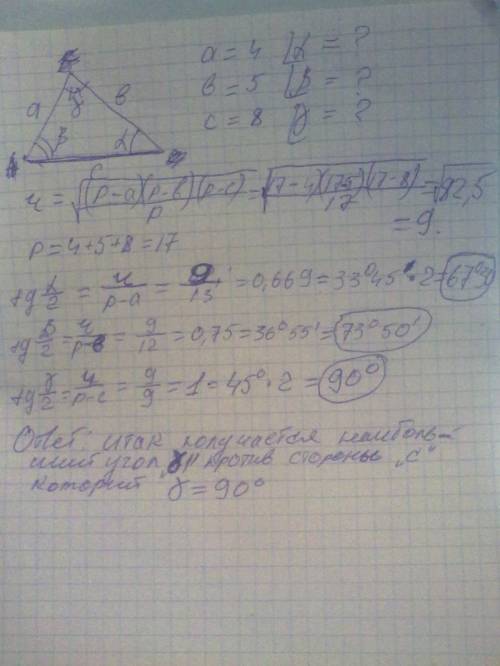 a = 4 ∠α = ?
в = 5 ∠β = ?
c = 8 ∠γ = ?
a γ в
β α
c
r = √((p-a)(p-в)(p-c)/p) = √((17-4)(17-5)(17-8)/17) = √82,5
= 9.
p = 4+5+8 = 17
tg α/2 = r/(p-a) = 9/13 = 0,669 = 33°45' · 2 = 67°
tg β/2 = r/(p-в) = 9/12 = 0,75 = 36°55' = 73°50'
tg γ/2 = r/(p-c) = 9/9 = 1 = 45° · 2 = 90°
Ответ: итак получается наиболь-
ший угол "γ" против стороны "c"
который γ = 90°